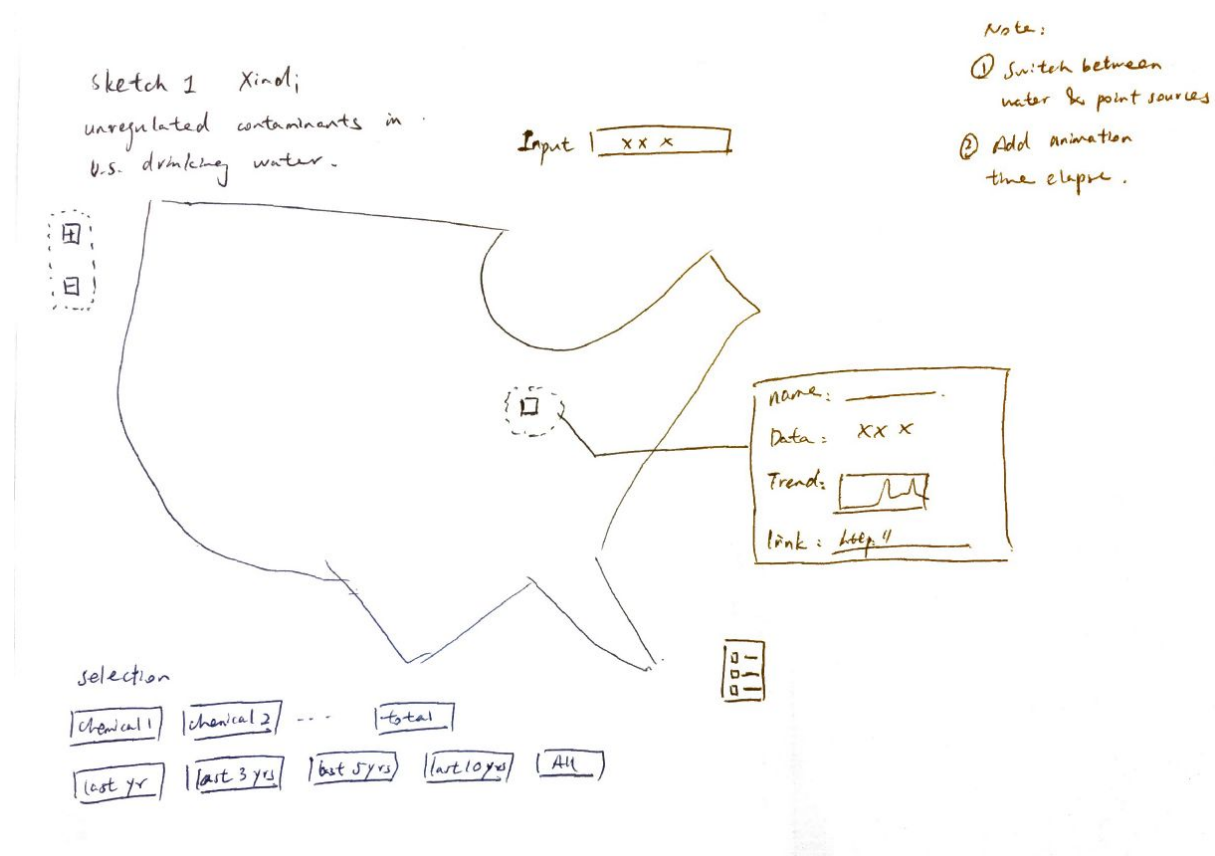 Sketch 1 Xindi
unregulated contaminants in
U.S. drinking water.
Input xx x
Note:
① Switch between
water & point sources
② Add animation
time elapse.
name:
Data: xx x
Trend:
link: http://
selection
chemical 1 chemical 2 ---- total
last yr last 3 yrs last 5 yrs last 10 yrs All